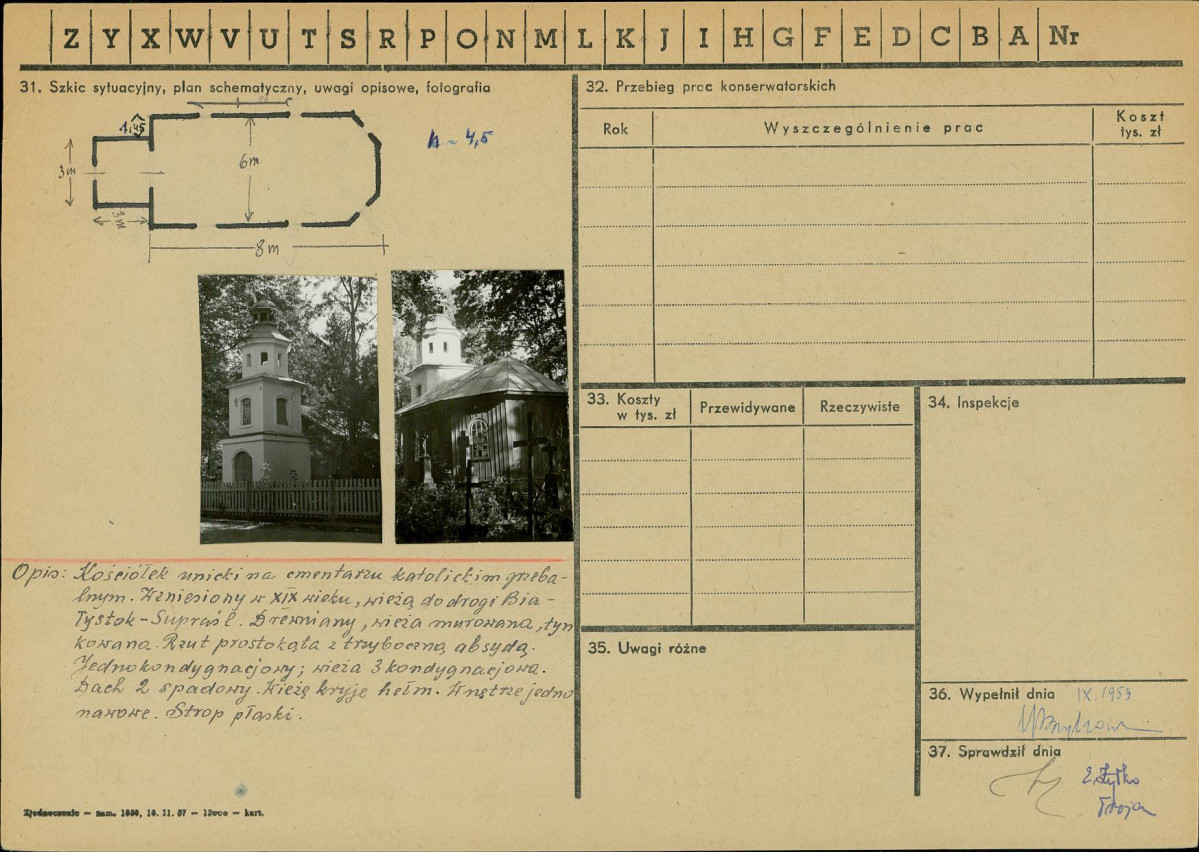 Z Y X W V U T S R P O N M L K J I H G F E D C B A Nr
31. Szkic sytuacyjny, plan schematyczny, uwagi opisowe, fotografia
1,45
h = 4,5
3m
6m
3m
8m
Opis: Kościółek unicki na cmentarzu katolickim grzeba-
lnym. Wzniesiony w XIX wieku, wieżą do drogi Bia-
łystok-Supraśl. Drewniany, wieża murowana, tyn
kowana. Rzut prostokąta z trzyboczną absydą.
Jednokondygnacjowy; wieża 3 kondygnacjowa.
Dach 2 spadowy. Wieżę kryje hełm. Wnętrze jedno
nawowe. Strop płaski.
Zjednoczenie — zam. 1050, 16. 11. 57 — 12000 — kart.
32. Przebieg prac konserwatorskich
Rok
Wyszczególnienie prac
Koszt
tys. zł
33. Koszty
w tys. zł
Przewidywane
Rzeczywiste
34. Inspekcje
35. Uwagi różne
36. Wypełnił dnia IX. 1959
37. Sprawdził dnia